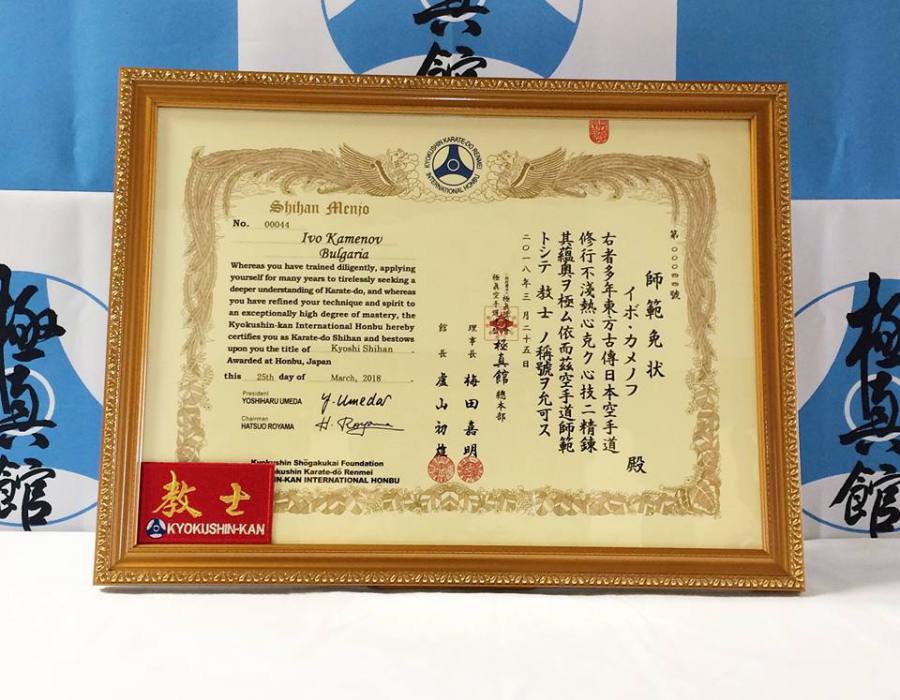 極真館
極真館
極真館
KYOKUSHIN KARATE-DO RENMEI
INTERNATIONAL HONBU
Shihan Menjo
No. 00044
Ivo Kamenov
Bulgaria
Whereas you have trained diligently, applying
yourself for many years to tirelessly seeking a
deeper understanding of Karate-do, and whereas
you have refined your technique and spirit to
an exceptionally high degree of mastery, the
Kyokushin-kan International Honbu hereby
certifies you as Karate-do Shihan and bestows
upon you the title of Kyoshi Shihan.
Awarded at Honbu, Japan
this 25th day of March, 2018.
President
YOSHIHARU UMEDA
Y. Umeda
Chairman
HATSUO ROYAMA
H. Royama
Kyokushin Shōgakukai Foundation
kushin Karate-dō Renmei
IN-KAN INTERNATIONAL HONBU
第〇〇〇四四號
師範免状
イボ・カメノフ 殿
右者多年東方古傳日本空手道
修行不淺熱心克ク心技ニ精錬
其蘊奥ヲ極ム依而茲空手道師範
トシテ 教士 ノ稱號ヲ允可ス
二〇一八年三月二十五日
極真館 總本部
理事長 梅田嘉明
館長 盧山初雄
教士
KYOKUSHIN-KAN